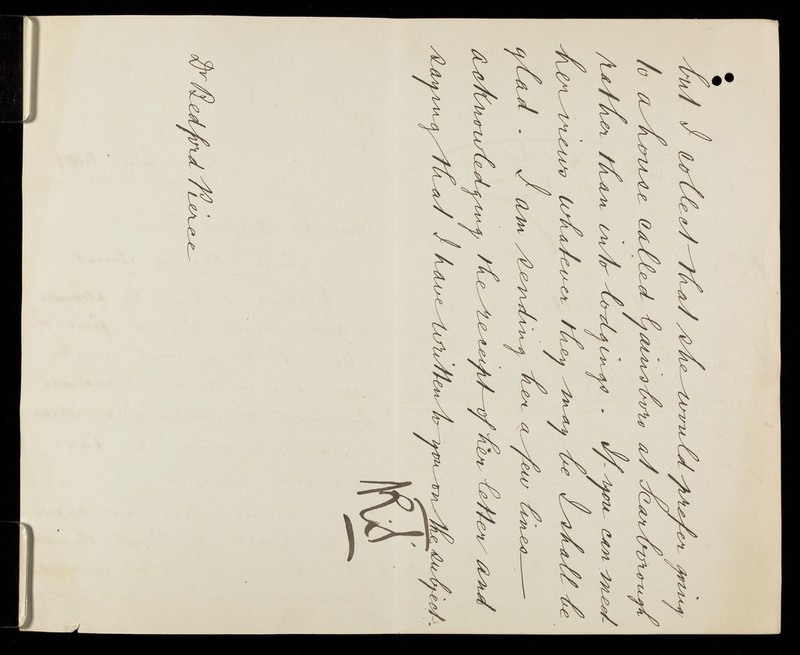 but I collect that she would prefer going
to a house called Gainsboro at Scarborough
rather than into lodgings. If you can meet
her views whatever they may be I shall be
glad. I am sending her a few lines—
acknowledging the receipt of her letter and
saying that I have written to you on the subject.
Dr Bedford Pierce